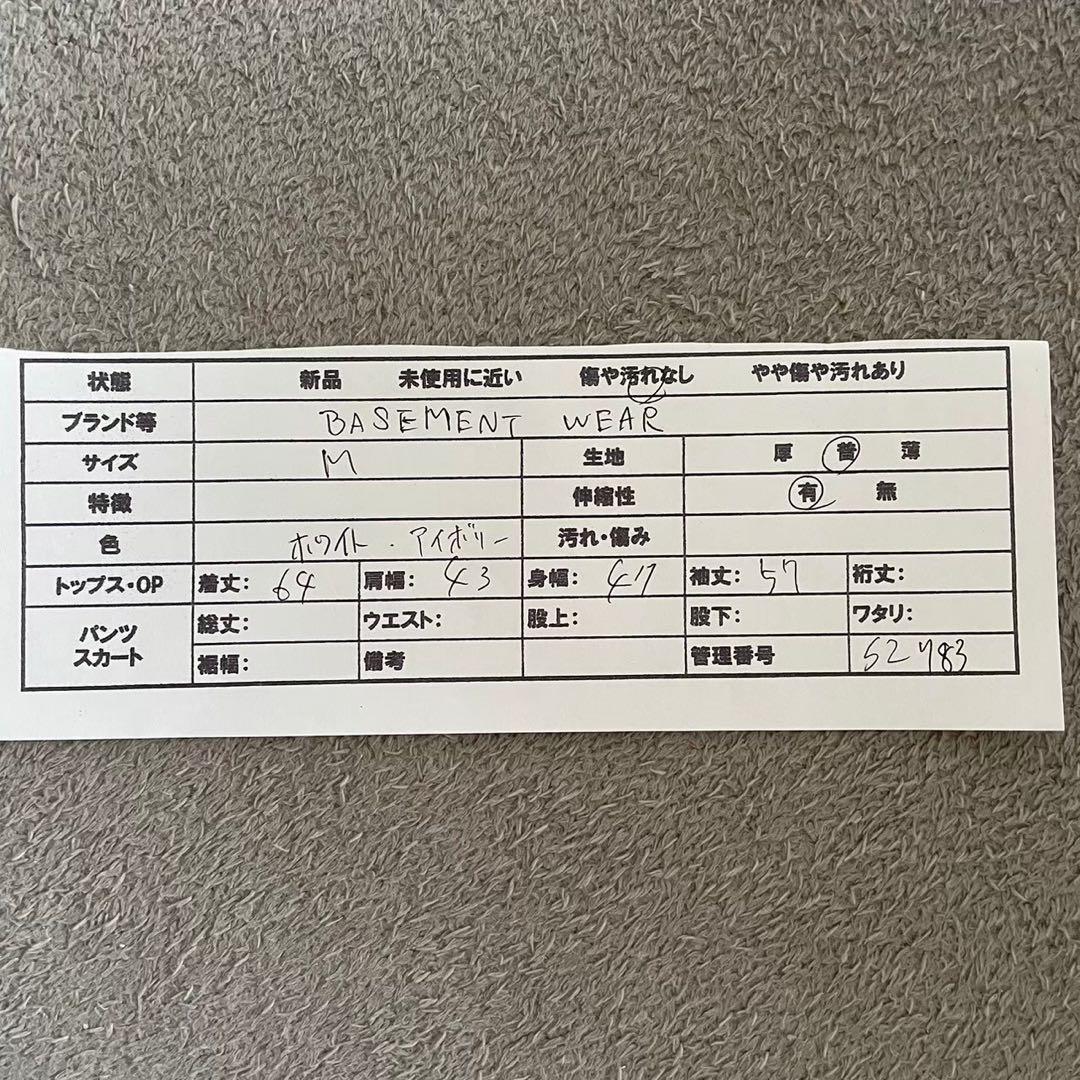 状態 新品 未使用に近い 傷や汚れなし やや傷や汚れあり
ブランド等 BASEMENT WEAR
サイズ M 生地 厚 普 薄
特徴 伸縮性 有 無
色 ホワイト・アイボリー 汚れ・傷み
トップス・OP 着丈: 64 肩幅: 43 身幅: 47 袖丈: 57 裄丈:
パンツ スカート 総丈: ウエスト: 股上: 股下: ワタリ:
裾幅: 備考 管理番号 52783